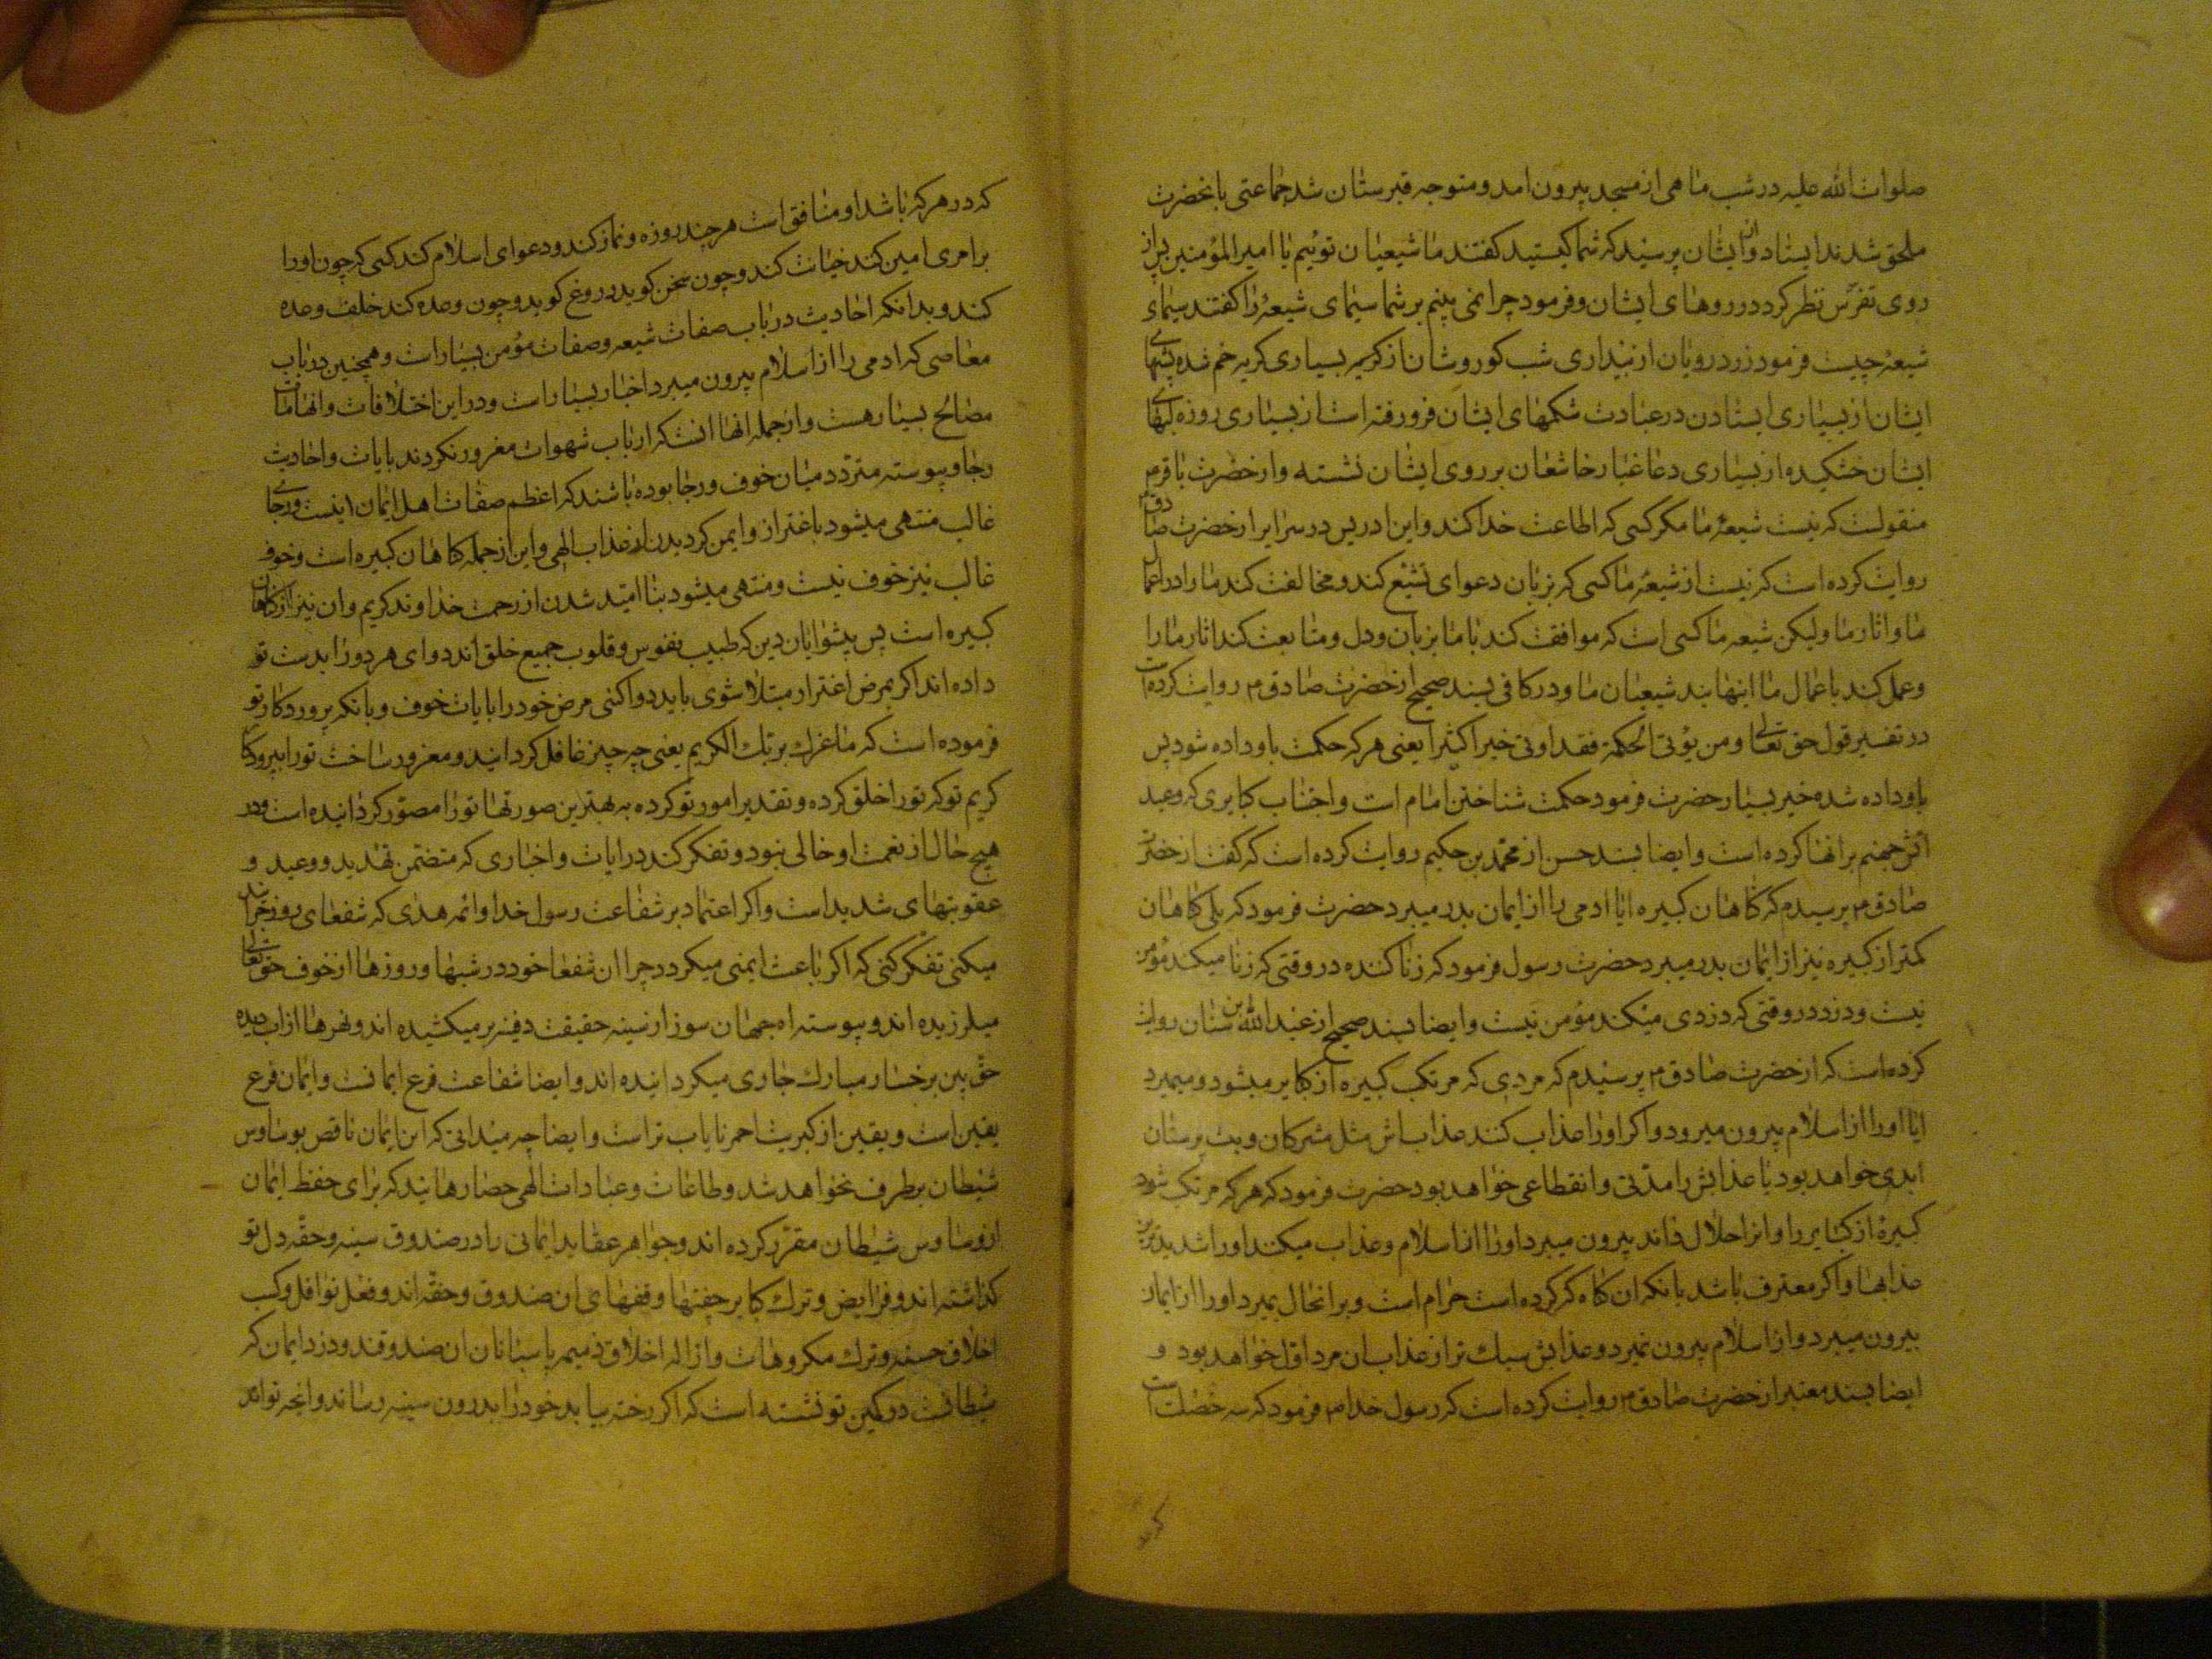 صلوات الله علیه در شب ماهی از مسجد بیرون امد و متوجه قبرستان شد جماعتی بانحضرت
ملحق شدند ایستاد و از ایشان پرسید که شما کیستید کفتند ما شیعیان توئیم یا امیرالمؤمنین پس از
روی تفرّس نظر کرد در روهای ایشان و فرمود چرا نمی بینم بر شما سیمای شیعه را کفتند سیمای
شیعه چیست فرمود زرد رویان از بیداری شب کوروشان از کریه بسیاری کریه خم شده پشتهای
ایشان از بسیاری ایستادن در عبادت شکمهای ایشان فرو رفته است از بسیاری روزه لبهای
ایشان خشکیده از بسیاری دعا غبار خاشعان بر روی ایشان نشسته و از حضرت باقر م
منقولست که نیست شیعهٔ ما مکر کسی که اطاعت خدا کند و ابن ادریس در سرایر از حضرت صادق م
روایت کرده است که نیست از شیعهٔ ما کسی که بزبان دعوای تشیّع کند و مخالفت کند ما را در اعمال
ما و اثار ما ولیکن شیعه ما کسی است که موافقت کند با ما بزبان و دل و متابعت کند اثار ما را
و عمل کند باعمال ما اینهایند شیعیان ما و در کافی بسند صحیح از حضرت صادق م روایت کرده است
در تفسیر قول حق تعالی و من یؤتی الحکمة فقد اوتی خیرا کثیرا یعنی هر که حکمت باو داده شود پس
باو داده شده خیر بسیار حضرت فرمود حکمت شناختن امام است و اجتناب کبایری که وعید
اتش جهنم برانها کرده است و ایضا بسند حسن از محمّد بن حکیم روایت کرده است که کفت از حضرت
صادق م پرسیدم که کناهان کبیره ایا ادمی را از ایمان بدر میبرد حضرت فرمود که بلی کناهان
کمتر از کبیره نیز از ایمان بدر میبرد حضرت رسول فرمود که زنا کننده در وقتی که زنا میکند مؤمن
نیست و دزد در وقتی که دزدی میکند مؤمن نیست و ایضا بسند صحیح از عبد الله بن سنان روایت
کرده است که از حضرت صادق م پرسیدم که مردی که مرتکب کبیره از کبایر میشود و میمیرد
ایا او را از اسلام بیرون میرود و اکر او را عذاب کنند عذاب اش مثل مشرکان و بت پرستان
ابدی خواهد بود یا عذابش را مدّتی و انقطاعی خواهد بود حضرت فرمود که هر که مرتکب شود
کبیرهٔ از کبایر را و انرا حلال داند بیرون میبرد او را از اسلام و عذاب میکند او را شدیدترین
عذابها و اکر معترف باشد بانکه ان کناه که کرده است حرام است و برانحال بمیرد او را از ایمان
بیرون میبرد و از اسلام بیرون نمیبرد و عذابش سبك تر از عذاب ان مرد اوّل خواهد بود و
ایضا بسند معتبر از حضرت صادق م روایت کرده است که رسول خدا م فرمود که سه خصلت است
که در هر که باشد او منافق است هر چند روزه و نماز کند و دعوای اسلام کند کسی که چون او را
بر امری امین کند خیانت کند و چون سخن کوید دروغ کوید و چون وعده کند خلف وعده
کند و بدانکه احادیث در باب صفات شیعه و صفات مؤمن بسیار است و همچنین در باب
معاصی که ادمی را از اسلام بیرون میبرد اخبار بسیار است و در این اختلافات و ابهامات
مصالح بسیار هست و از جمله انها انست که ارباب شهوات مغرور نکردند بایات و احادیث
رجا و پیوسته متردّد میان خوف و رجا بوده باشند که اعظم صفات اهل ایمان اینست و رجای
غالب منتهی میشود باغترار و ایمن کردیدن از عذاب الهی و این از جمله کناهان کبیره است و خوف
غالب نیز خوف نیست و منتهی میشود بنا امّید شدن از رحمت خداوند کریم و ان نیز از کناهان
کبیره است پس پیشوایان دین که طبیب نفوس و قلوب جمیع خلق اند دوای هر دو را بدست تو
داده اند اکر بمرض اغترار مبتلا شوی باید دوا کنی مرض خود را بایات خوف و بانکه پروردکار تو
فرموده است که ما غرّك بربّك الکریم یعنی چه چیز غافل کردانید و مغرور ساخت تو را بپروردکار
کریم تو که تو را خلق کرده و تقدیر امور تو کرده به بهترین صورتها تو را مصوّر کردانیده است و در
هیچ حال از نعمت او خالی نبود و تفکر کند در ایات و اخباری که متضمن تهدید و وعید و
عقوبتهای شدید است و اکر اعتماد بر شفاعت رسول خدا و ائمه هدی که شفعای روز جزایند
میکنی تفکّر کنی که اکر باعث ایمنی میکردد چرا ان شفعا خود در شبها و روزها از خوف حق تعالی
میلرزیده اند و پیوسته اه جهان سوز از سینه حقیقت دفینه بر میکشیده اند و نهرها از اب دیده
حقّ بین بر خسار مبارك جاری میکردانیده اند و ایضا شفاعت فرع ایمانست و ایمان فرع
یقین است و یقین از کبریت احمر نایاب تر است و ایضا چه میدانی که این ایمان ناقص بوساوس
شیطان برطرف نخواهد شد و طاعات و عبادات الهی حصارهایند که برای حفظ ایمان
از وساوس شیطان مقرّر کرده اند و جواهر عقاید ایمانی را در صندوق سینه و حقّه دل تو
کذاشته اند و فرایض و ترك کبایر چفتها و قفلهای ان صندوق و حقّه اند و فعل نوافل و کسب
اخلاق حسنه و ترك مکروهات و ازاله اخلاق ذمیمه پاسبانان ان صندوقند و دزد ایمان که
شیطانست در کمین تو نشسته است که اکر رخنه بیابد خود را بدرون سینه رساند و انچه تواند